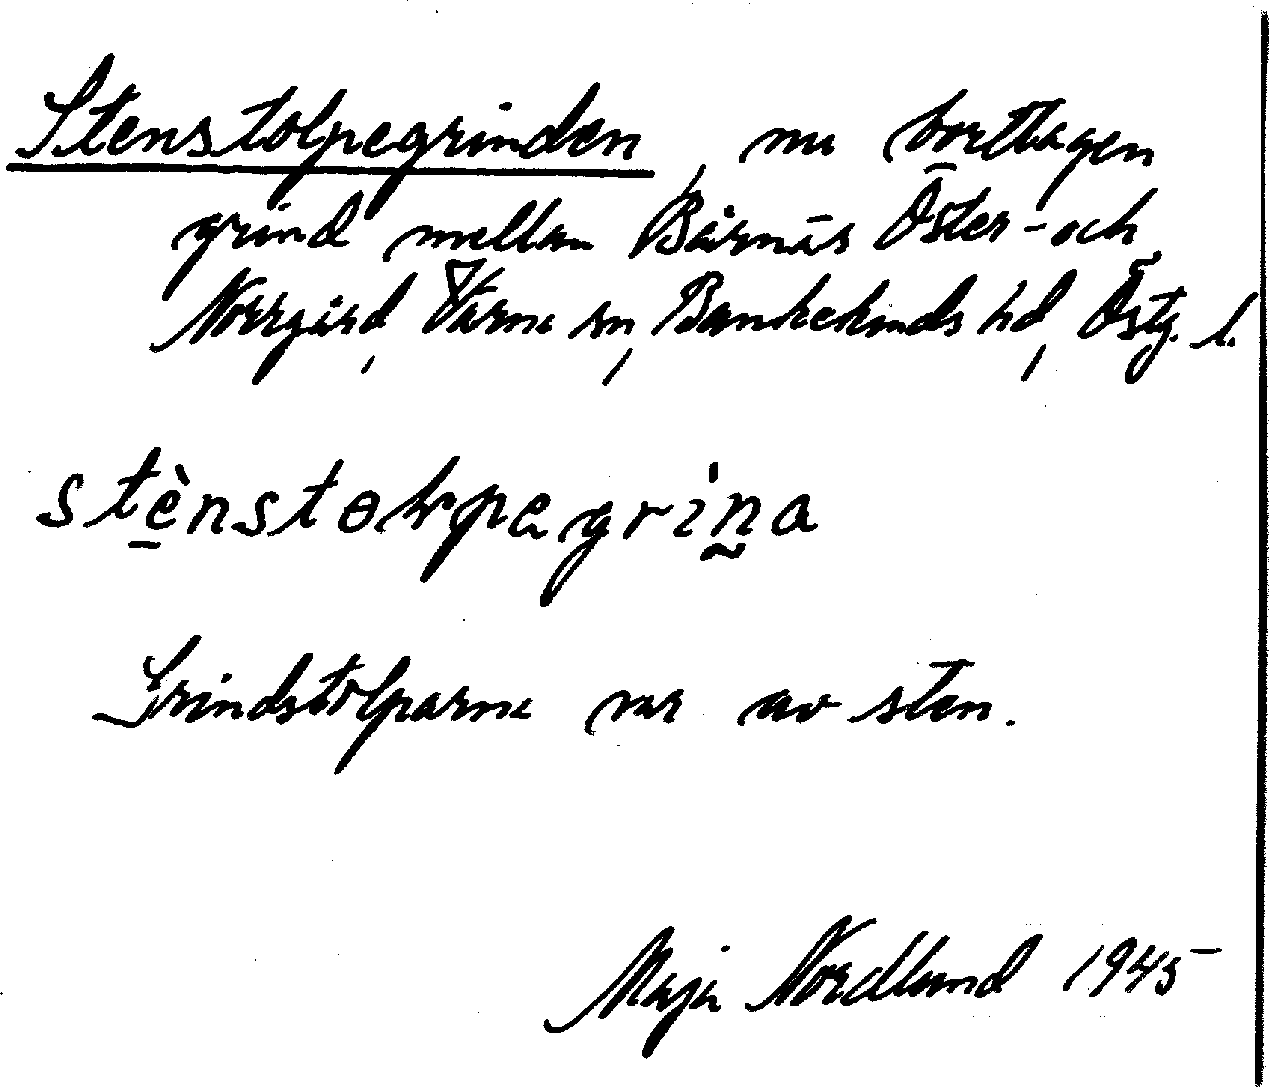 Stenstolpegrinden, nu borttagen
grind mellan Bärnäs Öster- och
Norrgård, Värna sn, Bankekinds hd, Östg. l.
stènstolpegrina
Grindstolparna var av sten.
Maja Nordlund 1945